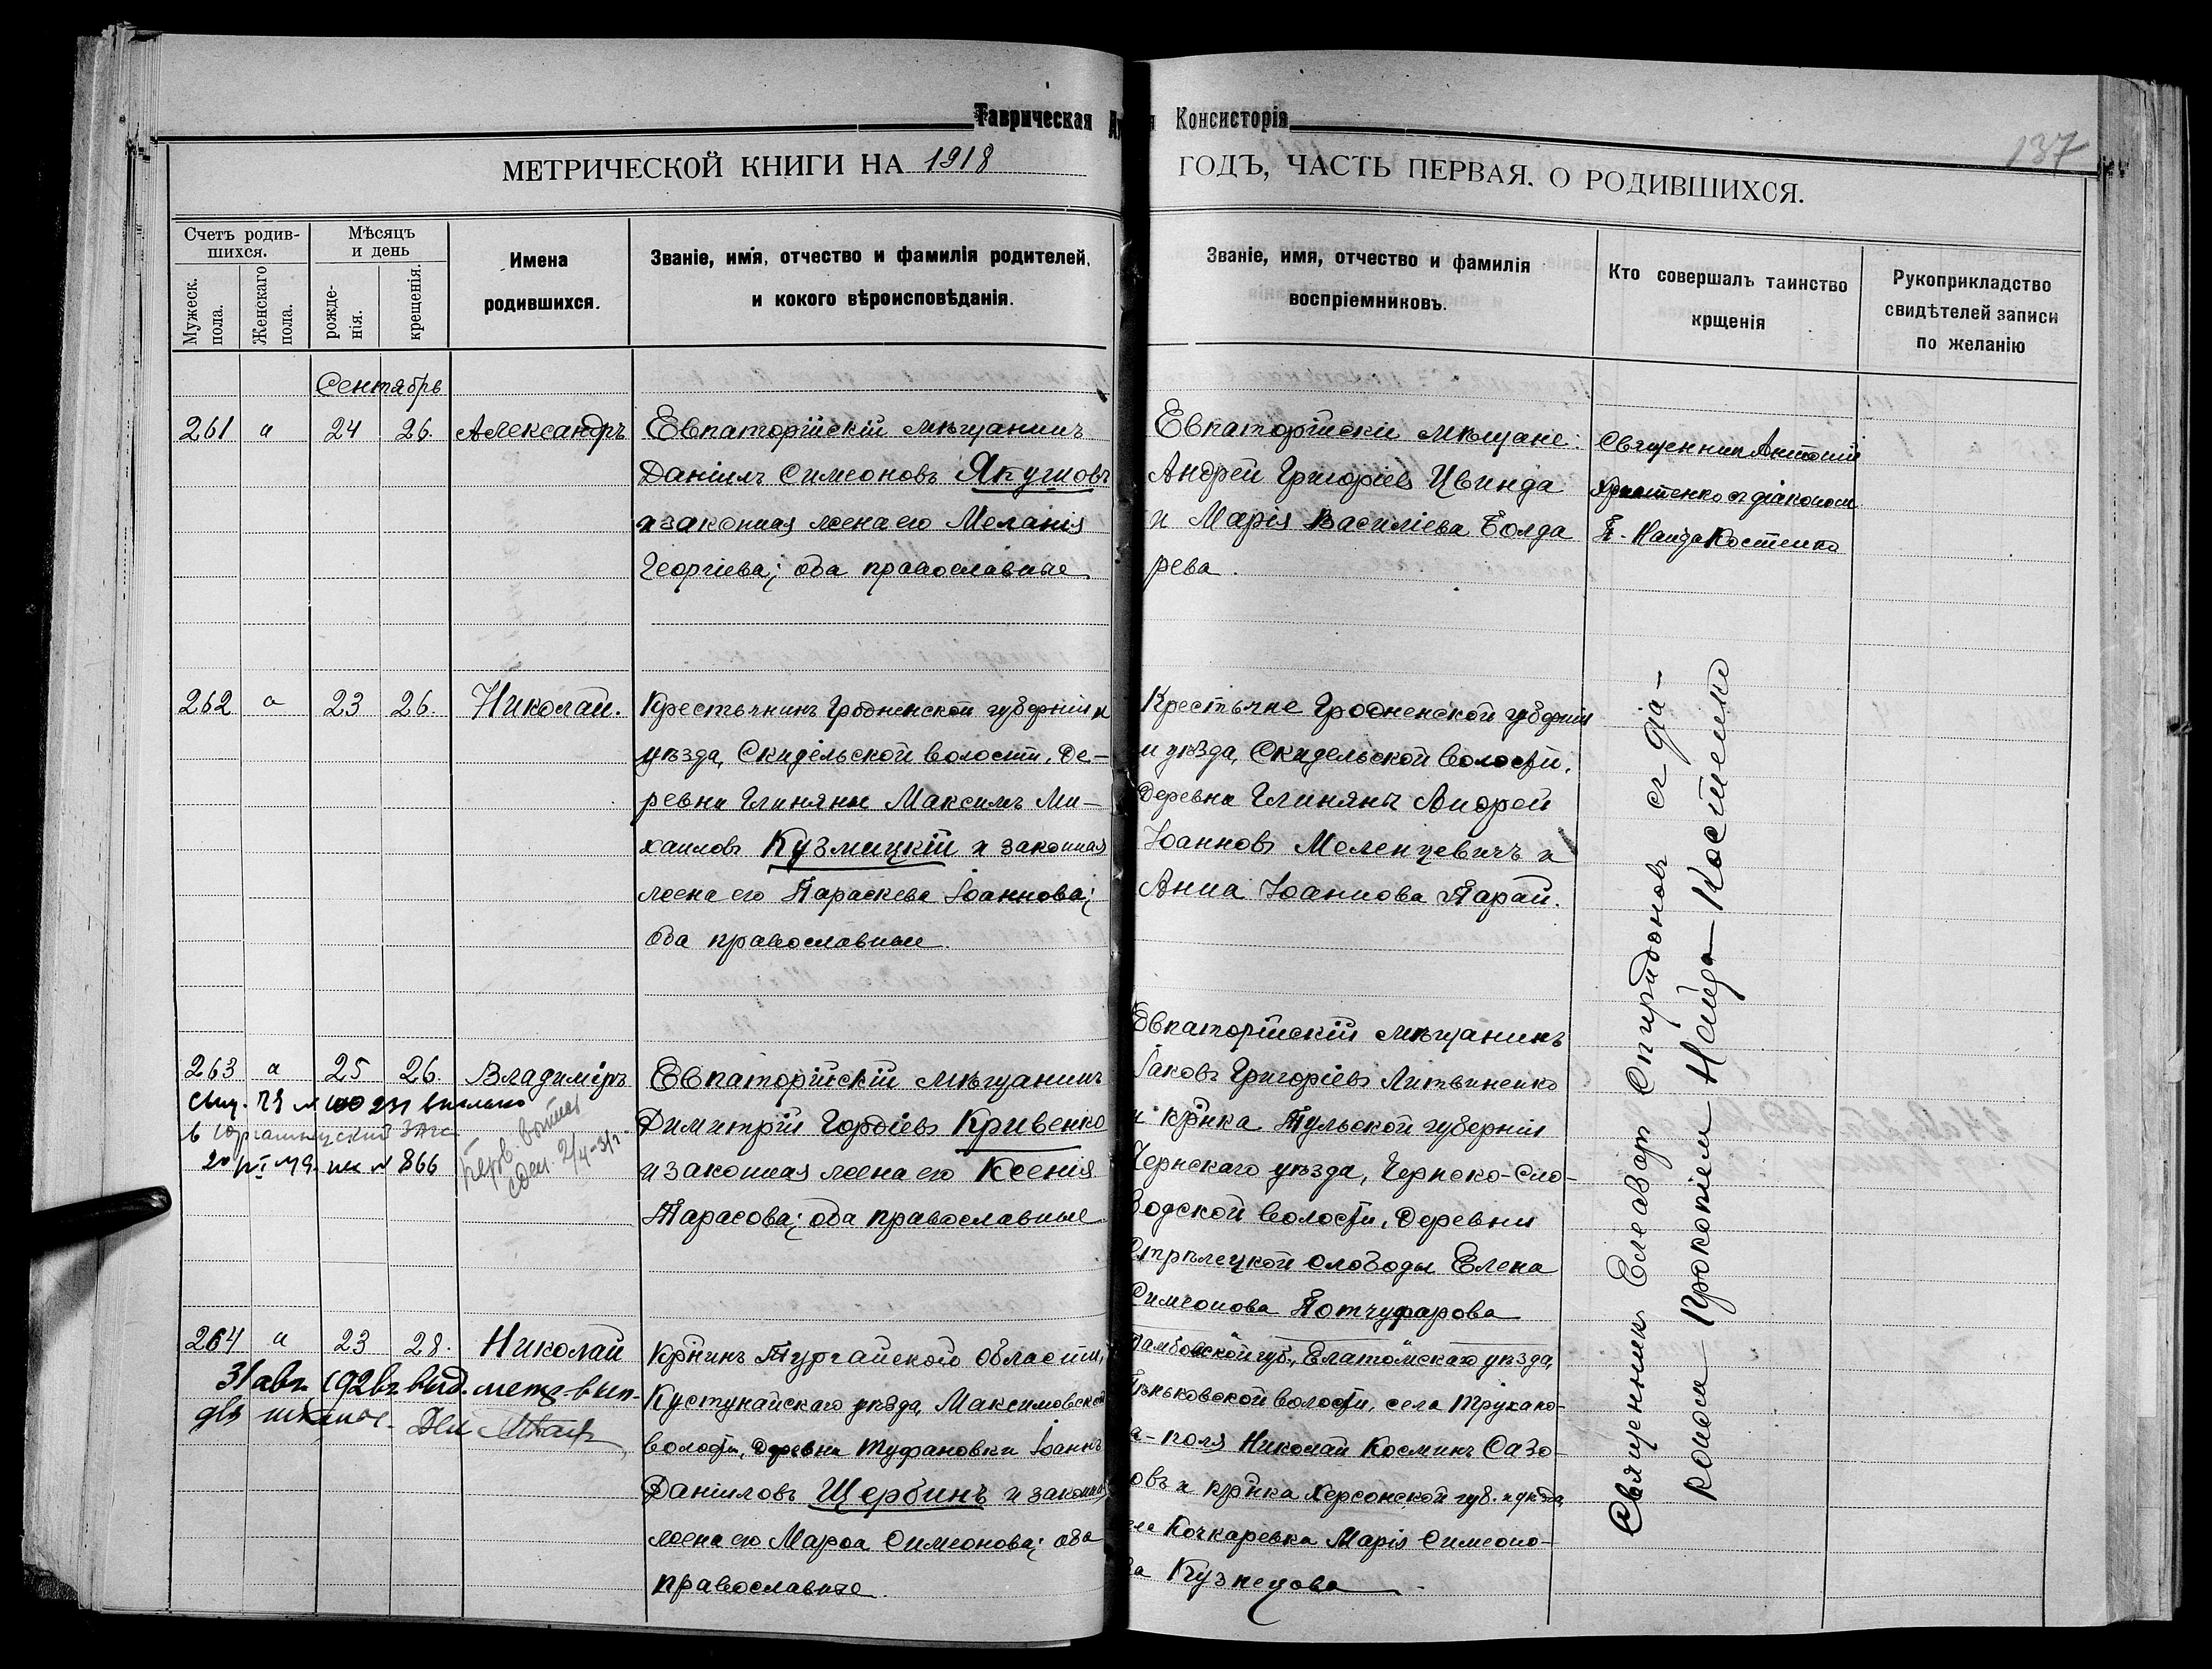 Таврическая
Консисторія
137
МЕТРИЧЕСКОЙ КНИГИ НА 1918
ГОДЪ, ЧАСТЬ ПЕРВАЯ. О РОДИВШИХСЯ.
Счетъ родив-
шихся.
Мужеск.
пола.
Женскаго
пола.
Мѣсяцъ
и день
рожде-
нія.
крещенія.
Имена
родившихся.
Званіе, имя, отчество и фамилія родителей,
и кокого вѣроисповѣданія.
Званіе, имя, отчество и фамилія
воспріемниковъ.
Кто совершалъ таинство
крщенія
Рукоприкладство
свидѣтелей записи
по желанію
Сентябрь
261 а 24 26. Александръ
Евпаторійскій мѣщанинъ
Даніилъ Симеоновъ Якушовъ
и законная жена его Меланія
Георгіева; оба православные
Евпаторійскіи мѣщане:
Андрей Григоріевъ Цвинда
и Марія Василіева Болда
рева.
Священник Антоній
Христенко съ діакономъ
П. Найда Костенко
262 а 23 26. Николай.
Крестьянинъ Гродненской губерніи и
уѣзда, Скидельской волости, де-
ревни Глиняны Максимъ Ми-
хаиловъ Кузмицкій и законная
жена его Параскева Іоаннова;
оба православные.
Крестьяне Гродненской губерніи
и уѣзда, Скидельской волости,
деревни Глиняны Андрей
Іоанновъ Меленцевичъ и
Анна Іоаннова Парай.
263 а 25 26. Владиміръ
в
866
2/4-31 г.
Евпаторійскій мѣщанинъ
Димитрій Гордіевъ Кривенко
и законная жена его Ксенія
Тарасова; оба православные
Евпаторійскій мѣщанинъ
Іаковъ Григоріевъ Литвиненко
и кр-нка Тульской губерніи
Чернскаго уѣзда, Чернско-Сло-
бодской волости, деревни
Стрѣлецкой слободы Елена
Симеонова Потчуфарова
264 а 23 28. Николай
31 авг. 192 г. выд. метр. вып.
для
Кр-нинъ Тургайской области,
Кустунайскаго уѣзда, Максимовской
волости, деревни Туфановки Іоаннъ
Даніиловъ Щербинъ и законная
жена его Марѳа Симеонова; оба
православные.
Тамбовской губ., Елатомскаго уѣзда,
волости, села Трухано-
ва-поля Николай Косминъ Сазо-
новъ и кр-нка Херсонской губ. и уѣзда,
села Кочкаревка Марія Симеоно-
ва Кузнецова
Священник Елеазар Спиридоновъ съ діа-
кономъ Прокопіем Найда-Костенко